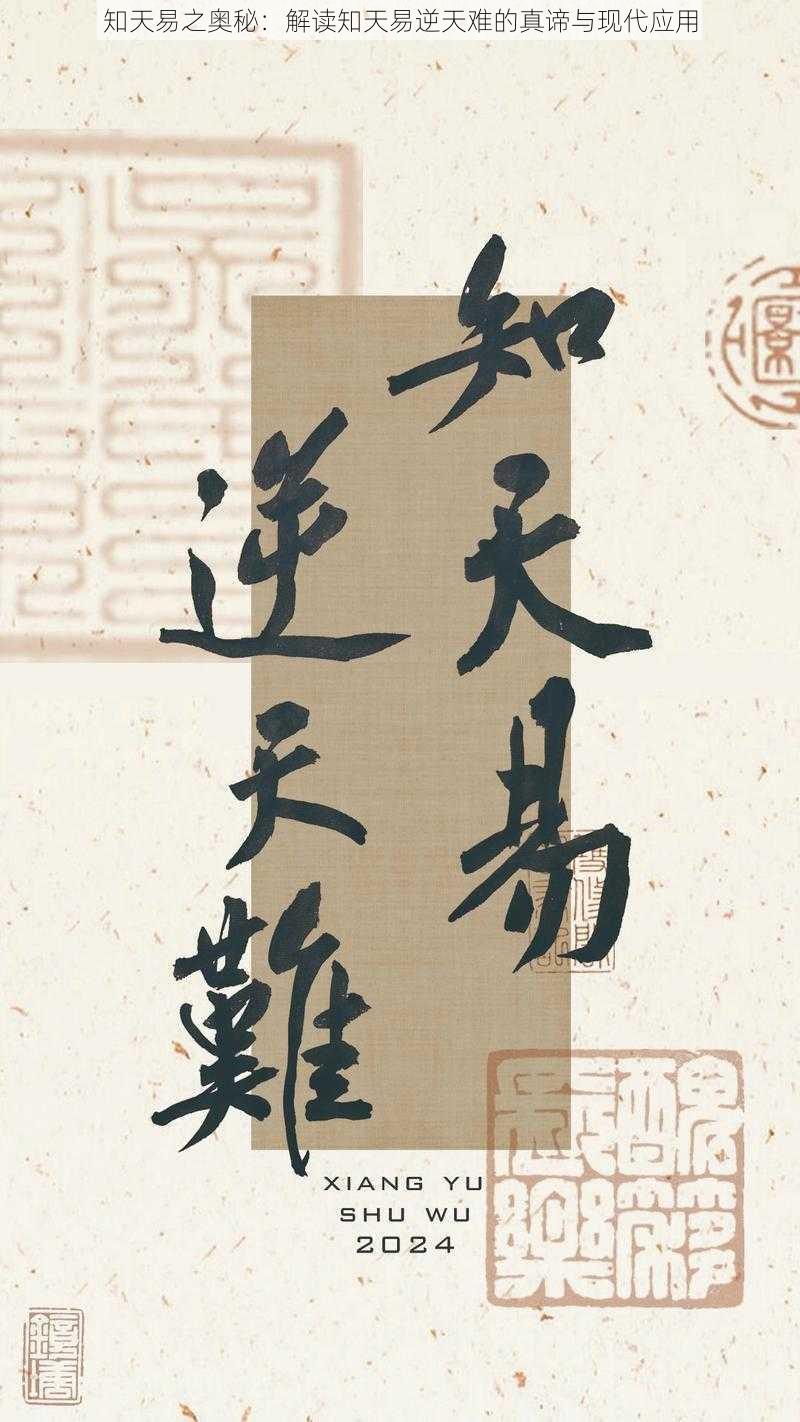 知天易之奥秘：解读知天易逆天难的真谛与现代应用
知天易
逆天難
XIANG YU
SHU WU
2024